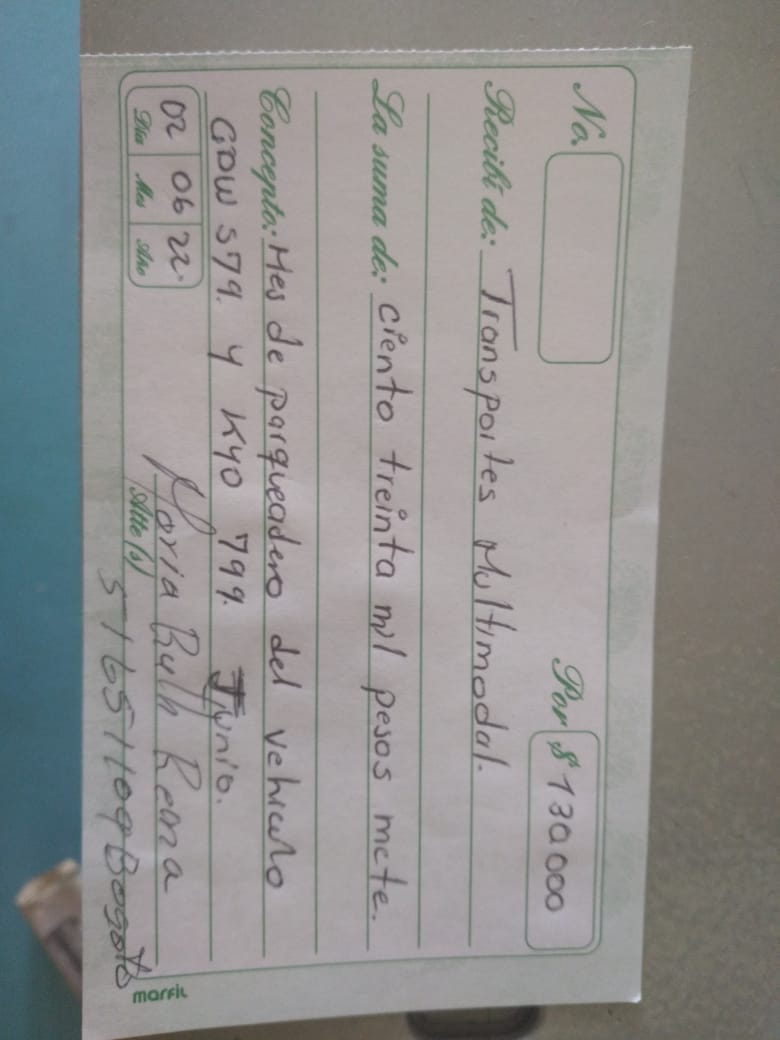 No. Por $ 130000
Recibí de: Transportes Multimodal.
La suma de: Ciento treinta mil pesos mcte.
Concepto: Mes de parqueadero del vehiculo
GDW 579. Y KYO 799. Junio.
02 06 22.
Día Mes Año
Maria Ruth Reina
Atte(s)
51651109 Bogotá
marfil